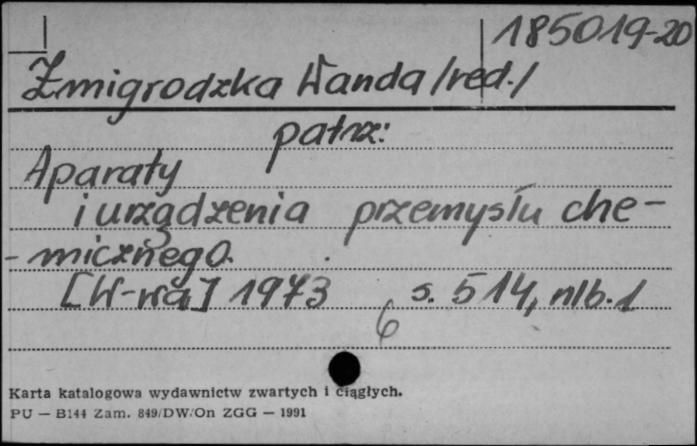 185019-20
Żmigrodzka Wanda /red./
patrz:
Aparaty
i urządzenia przemysłu che-
- micznego.
[W-wa] 1973 s. 514, nlb. 1
6
Karta katalogowa wydawnictw zwartych i ciągłych.
PU — B144 Zam. 849/DW/On ZGG — 1991